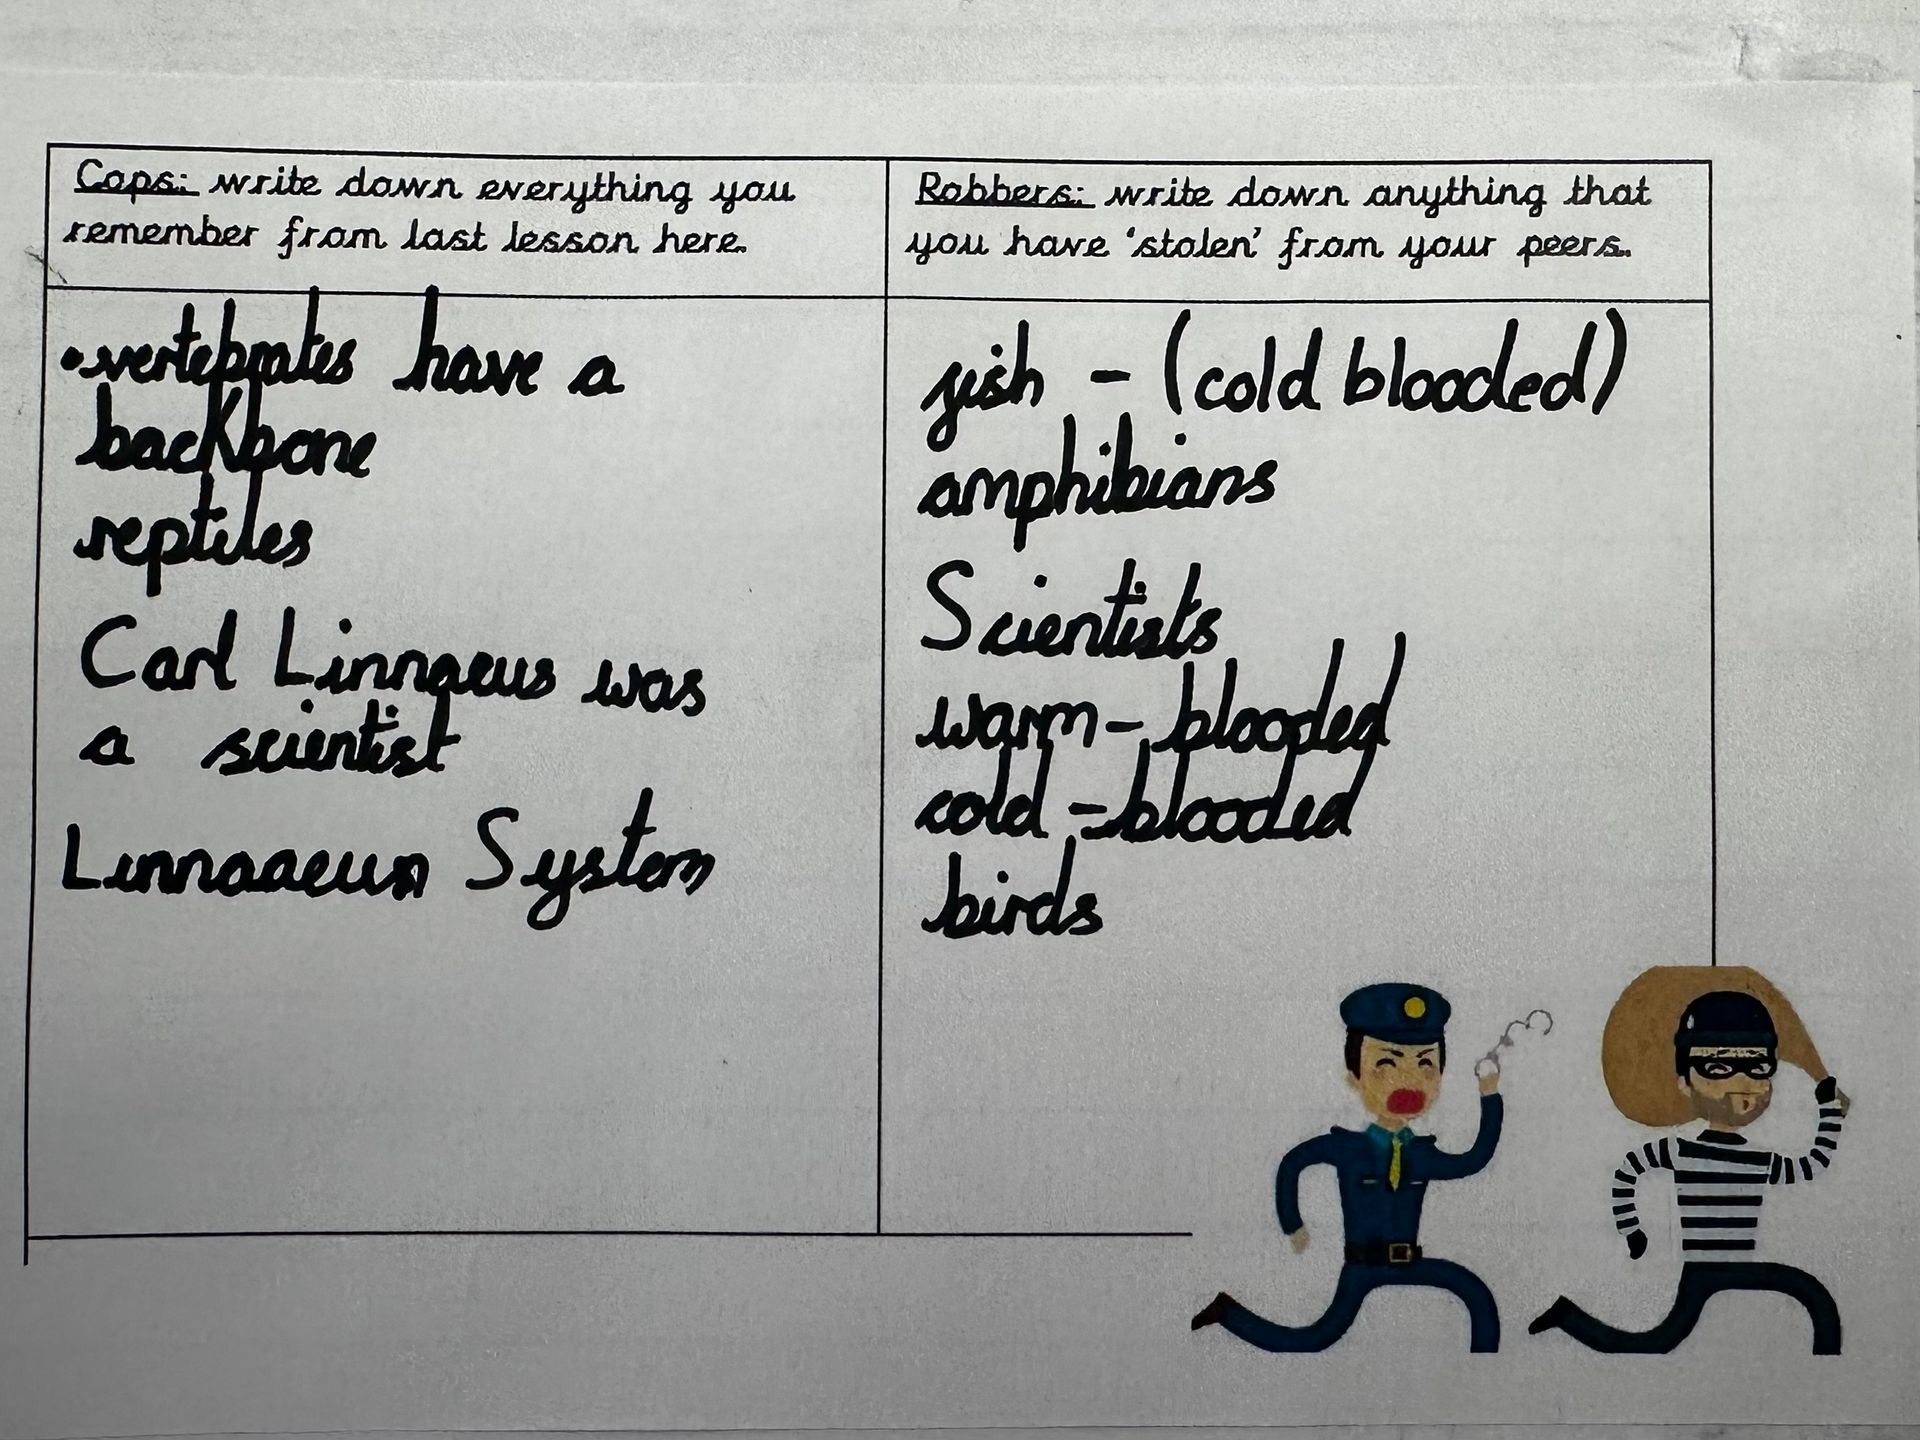 Cops: write down everything you
remember from last lesson here.
• vertebrates have a
backbone
reptiles
Carl Linnaeus was
a scientist
Linnaaeun System
Robbers: write down anything that
you have 'stolen' from your peers.
fish - (cold blooded)
amphibians
Scientists
warm-blooded
cold-blooded
birds